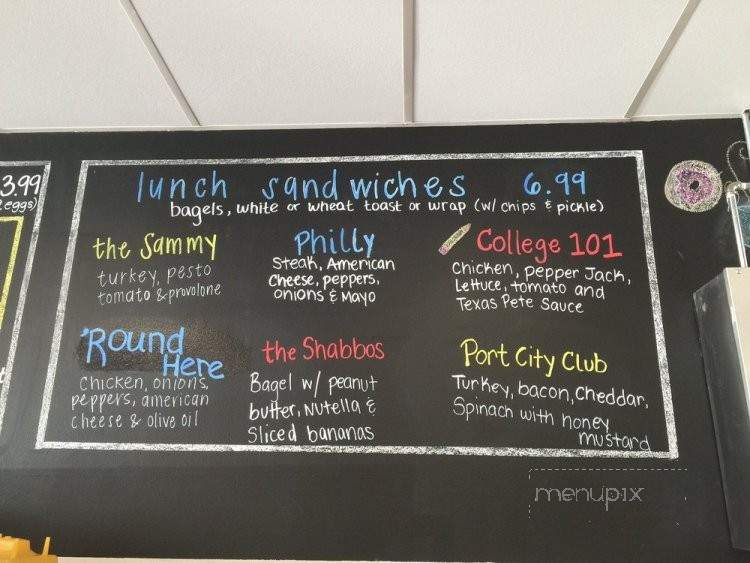 3.99
eggs)
lunch sandwiches 6.99
bagels, white or wheat toast or wrap (w/ chips & pickle)
the Sammy
turkey, pesto
tomato & provolone
Philly
Steak, American
Cheese, peppers,
onions & mayo
College 101
Chicken, pepper Jack,
Lettuce, tomato and
Texas Pete Sauce
'Round
Here
Chicken, onions,
peppers, american
cheese & olive oil
the Shabbos
Bagel w/ peanut
butter, Nutella &
Sliced bananas
Port City Club
Turkey, bacon, Cheddar,
Spinach with honey
mustard
menupix